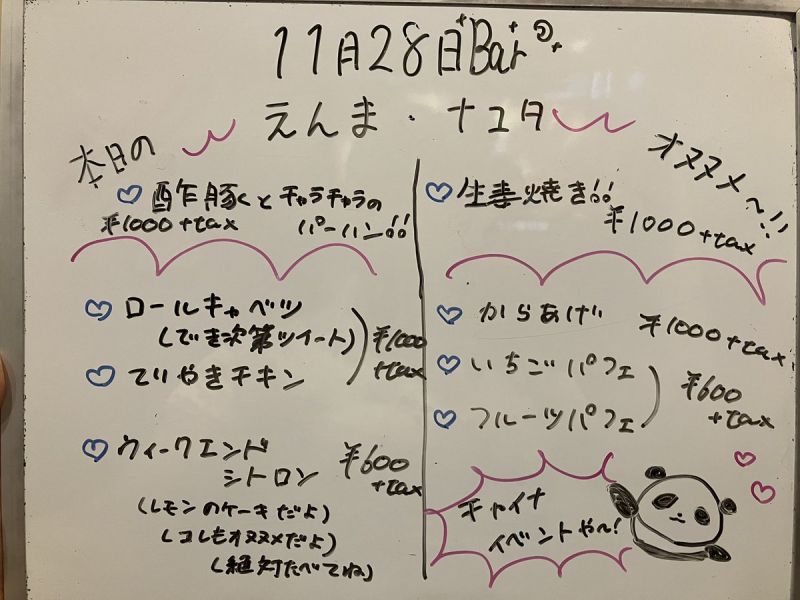 11月28日Bar
えんま・ナユタ
本日の
オススメ〜!!
酢豚くとチャラチャラの
パーハン!!
¥1000+tax
ロールキャベツ
(でき次第ツイート)
てりやきチキン
¥1000
+tax
ウィークエンド
シトロン
¥600
+tax
(レモンのケーキだよ)
(コレもオススメだよ)
(絶対たべてね)
生姜焼き!!
¥1000+tax
からあげ
¥1000+tax
いちごパフェ
フルーツパフェ
¥600
+tax
チャイナ
イベントや〜!